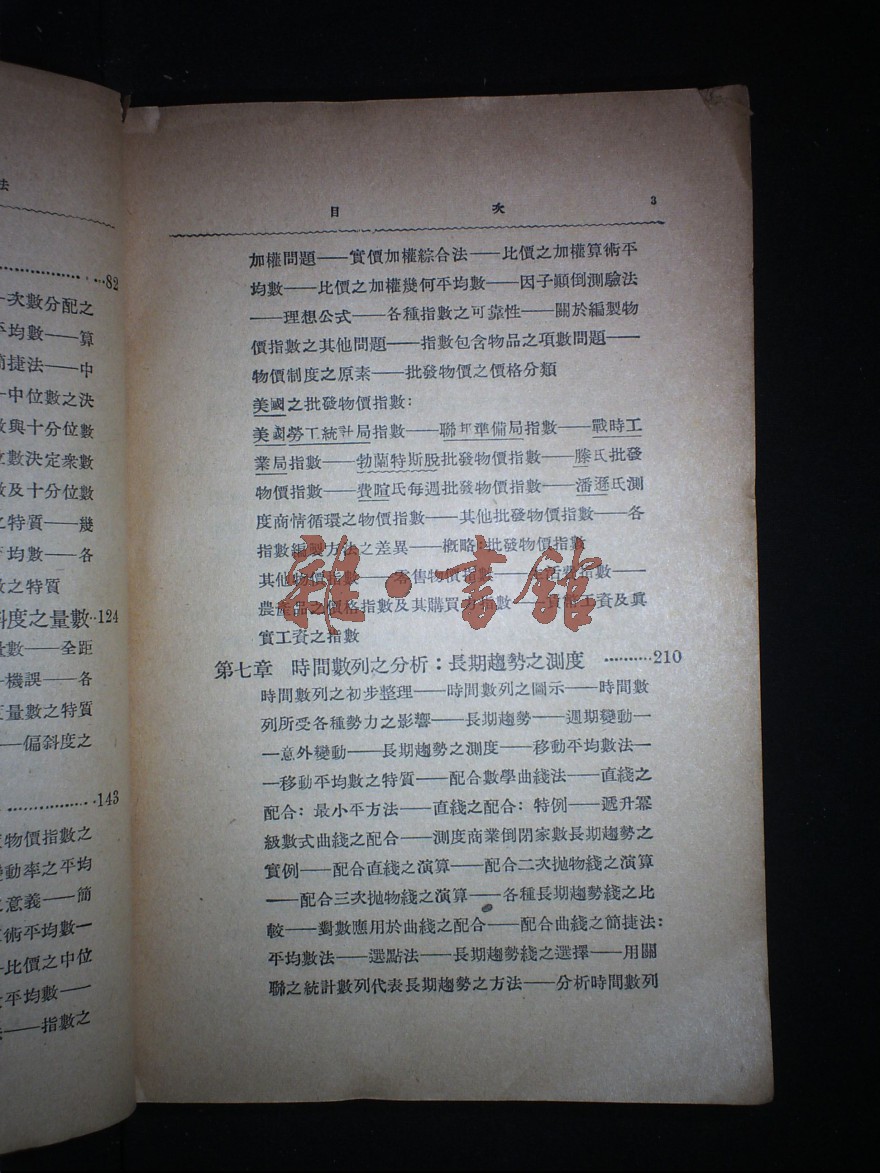 法
82
次數分配之
平均數——算
簡捷法——中
中位數之決
數與十分位數
位數決定衆數
數及十分位數
之特質——幾
平均數——各
數之特質
斜度之量數··124
量數——全距
機誤——各
量數之特質
——偏斜度之
143
物價指數之
變動率之平均
之意義——簡
術平均數—
比價之中位
平均數——
——指數之
目 次 3
加權問題——實價加權綜合法——比價之加權算術平
均數——比價之加權幾何平均數——因子顚倒測驗法
——理想公式——各種指數之可靠性——關於編製物
價指數之其他問題——指數包含物品之項數問題——
物價制度之原素——批發物價之價格分類
美國之批發物價指數:
美國勞工統計局指數——聯邦準備局指數——戰時工
業局指數——勃蘭特斯脫批發物價指數——滕氏批發
物價指數——費暄氏每週批發物價指數——潘遜氏測
度商情循環之物價指數——其他批發物價指數——各
指數編製方法之差異——概略批發物價指數
其他物價指數——零售物價指數——生活費指數——
農產品之價格指數及其購買力指數——貨幣工資及眞
實工資之指數
雜·書館
第七章 時間數列之分析:長期趨勢之測度 ··········210
時間數列之初步整理——時間數列之圖示——時間數
列所受各種勢力之影響——長期趨勢——週期變動—
—意外變動——長期趨勢之測度——移動平均數法—
—移動平均數之特質——配合數學曲綫法——直綫之
配合:最小平方法——直綫之配合:特例——遞升冪
級數式曲綫之配合——測度商業倒閉家數長期趨勢之
實例——配合直綫之演算——配合二次拋物綫之演算
——配合三次拋物綫之演算——各種長期趨勢綫之比
較——對數應用於曲綫之配合——配合曲綫之簡捷法:
平均數法——選點法——長期趨勢綫之選擇——用關
聯之統計數列代表長期趨勢之方法——分析時間數列